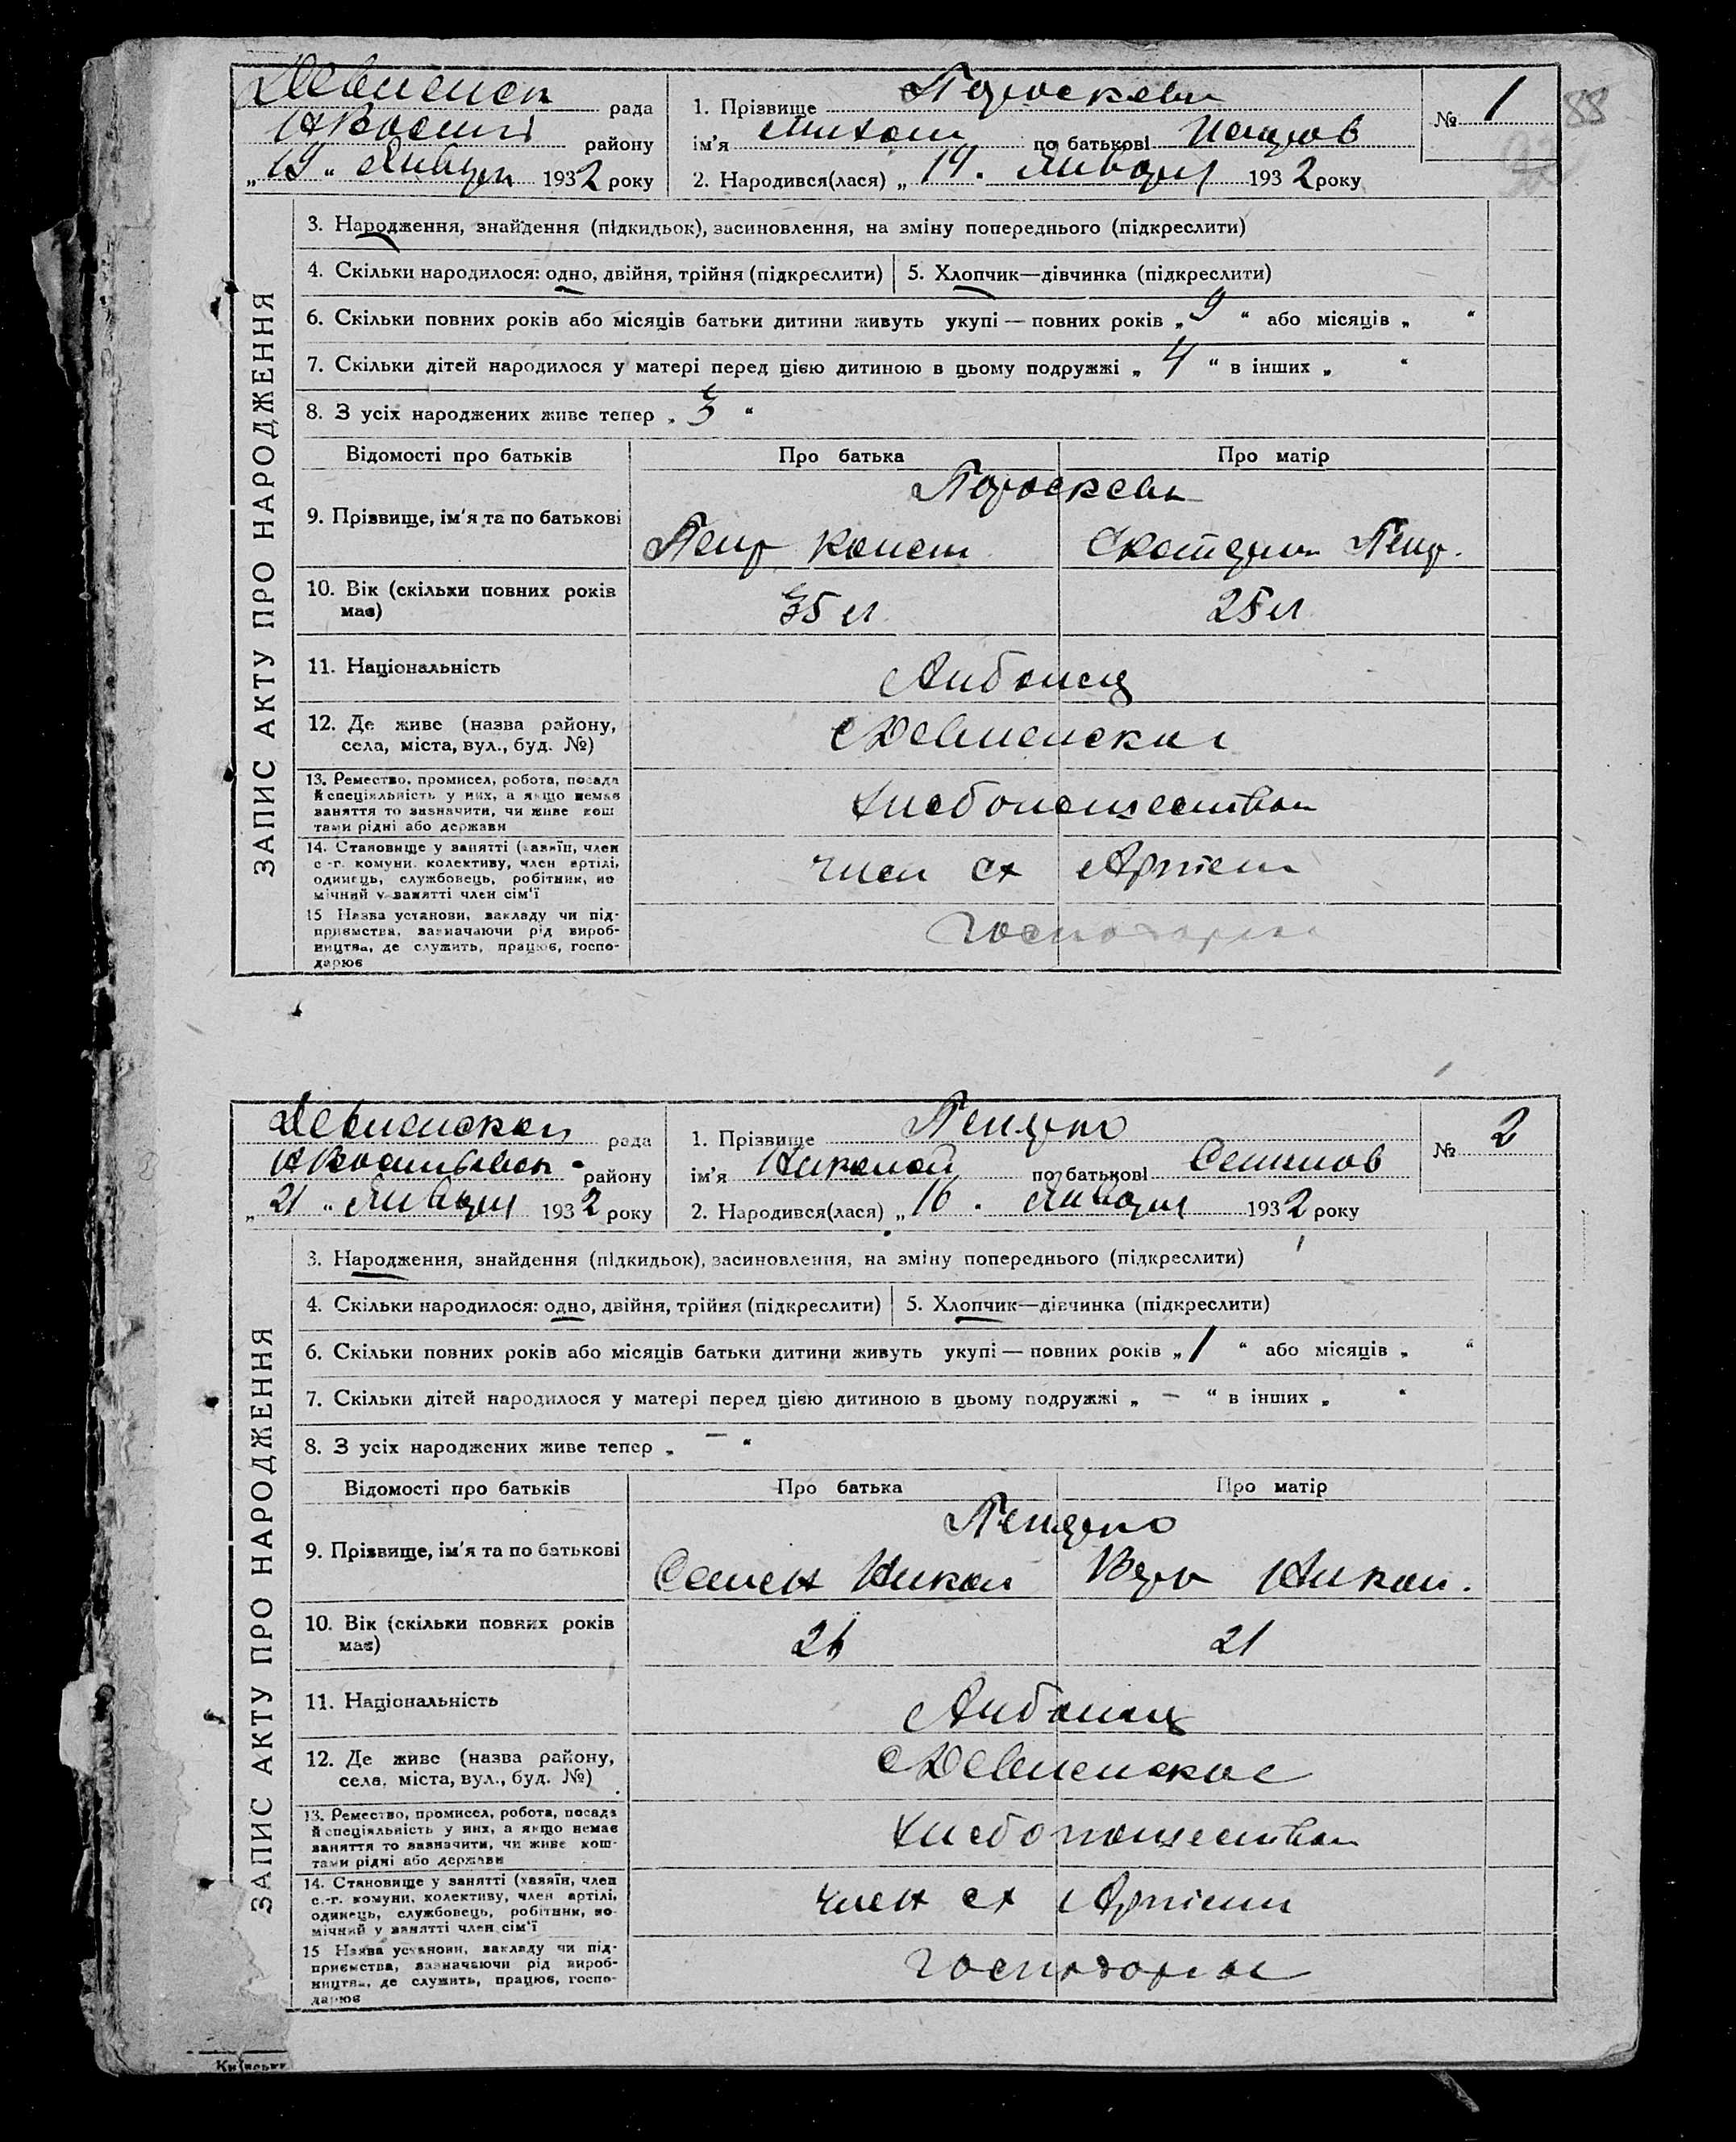 Девненск рада
НВасил району
„ 19 “ Января 1932 року
1. Прізвище Пароскева
ім'я Михаил по батькові Петров
2. Народився(лася) „ 14. Января 1932 року
№ 1
88
3. Народження, знайдення (підкидьок), засиновлення, на зміну попереднього (підкреслити)
4. Скільки народилося: одно, двійня, трійня (підкреслити) 5. Хлопчик—дівчинка (підкреслити)
6. Скільки повних років або місяців батьки дитини живуть укупі — повних років „ 9 “ або місяців „ “
7. Скільки дітей народилося у матері перед цією дитиною в цьому подружжі „ 4 “ в інших „ “
8. З усіх народжених живе тепер „ 3 “
Відомості про батьків Про батька Про матір
Пароскева
9. Прізвище, ім'я та по батькові
Петр Конст Екатерин Петр.
10. Вік (скільки повних років
має)
35 л 25 л
11. Національність
Албанец
12. Де живе (назва району,
села, міста, вул., буд. №)
с Девненское
13. Ремество, промисел, робота, посада
й спеціяльність у них, а якщо немає
заняття то зазначити, чи живе кош
тами рідні або держави
Хлебопашеством
14. Становище у занятті (хазяїн, член
с.-г. комуни, колективу, член артілі,
одинець, службовець, робітник, по
мічний у занятті член сім'ї
член сх Артели
15 Назва установи, закладу чи під-
приємства, зазначаючи рід вироб-
ництва, де служить, працює, госпо-
дарює
ЗАПИС АКТУ ПРО НАРОДЖЕННЯ
Девненской рада
району
„ 21 “ Января 1932 року
1. Прізвище
ім'я Николай по батькові Семенов
2. Народився(лася) „ 16. Января 1932 року
№ 2
3. Народження, знайдення (підкидьок), засиновлення, на зміну попереднього (підкреслити)
4. Скільки народилося: одно, двійня, трійня (підкреслити) 5. Хлопчик—дівчинка (підкреслити)
6. Скільки повних років або місяців батьки дитини живуть укупі — повних років „ 1 “ або місяців „ “
7. Скільки дітей народилося у матері перед цією дитиною в цьому подружжі „ — “ в інших „ “
8. З усіх народжених живе тепер „ — “
Відомості про батьків Про батька Про матір
9. Прізвище, ім'я та по батькові
Семен Никол Вера Никол.
10. Вік (скільки повних років
має)
26 21
11. Національність
Албанец
12. Де живе (назва району,
села, міста, вул., буд. №)
с Девненское
13. Ремество, промисел, робота, посада
й спеціяльність у них, а якщо немає
заняття то зазначити, чи живе кош-
тами рідні або держави
Хлебопашеством
14. Становище у занятті (хазяїн, член
с.-г. комуни, колективу, член артілі,
одинець, службовець, робітник, по-
мічний у занятті член сім'ї
член сх Артели
15 Назва установи, закладу чи під-
приємства, зазначаючи рід вироб-
ництва, де служить, працює, госпо-
дарює
ЗАПИС АКТУ ПРО НАРОДЖЕННЯ